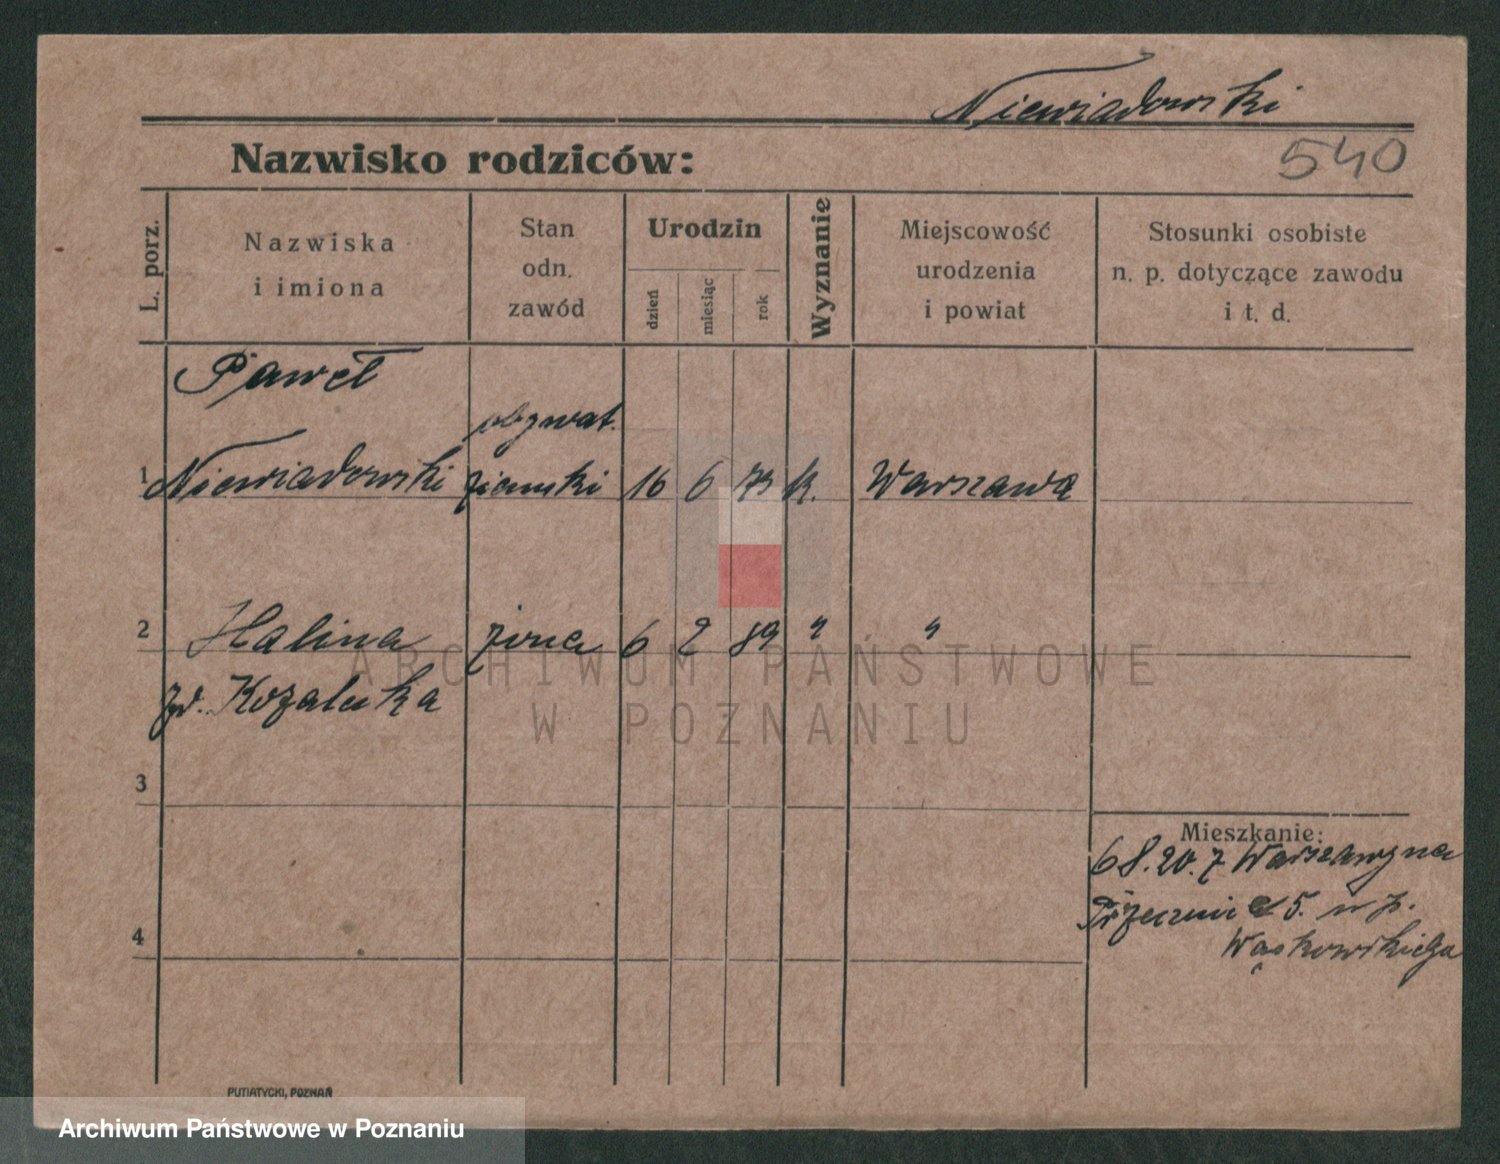 Niewiadowski
Nazwisko rodziców:
540
L. porz.
Nazwiska
i imiona
Stan
odn.
zawód
Urodzin
dzień
miesiąc
rok
Wyznanie
Miejscowość
urodzenia
i powiat
Stosunki osobiste
n. p. dotyczące zawodu
i t. d.
Paweł
obywat.
1 Niewiadowski ziemski 16 6 73 k. Warszawa
2 Halina żona 6 2 89 " "
zd.
3
4
Mieszkanie:
6 8. 20. z Warszawy na
5. u p.
Wąskowskiego
ARCHIWUM PAŃSTWOWE
W POZNANIU
PUTIATYCKI, POZNAŃ
Archiwum Państwowe w Poznaniu